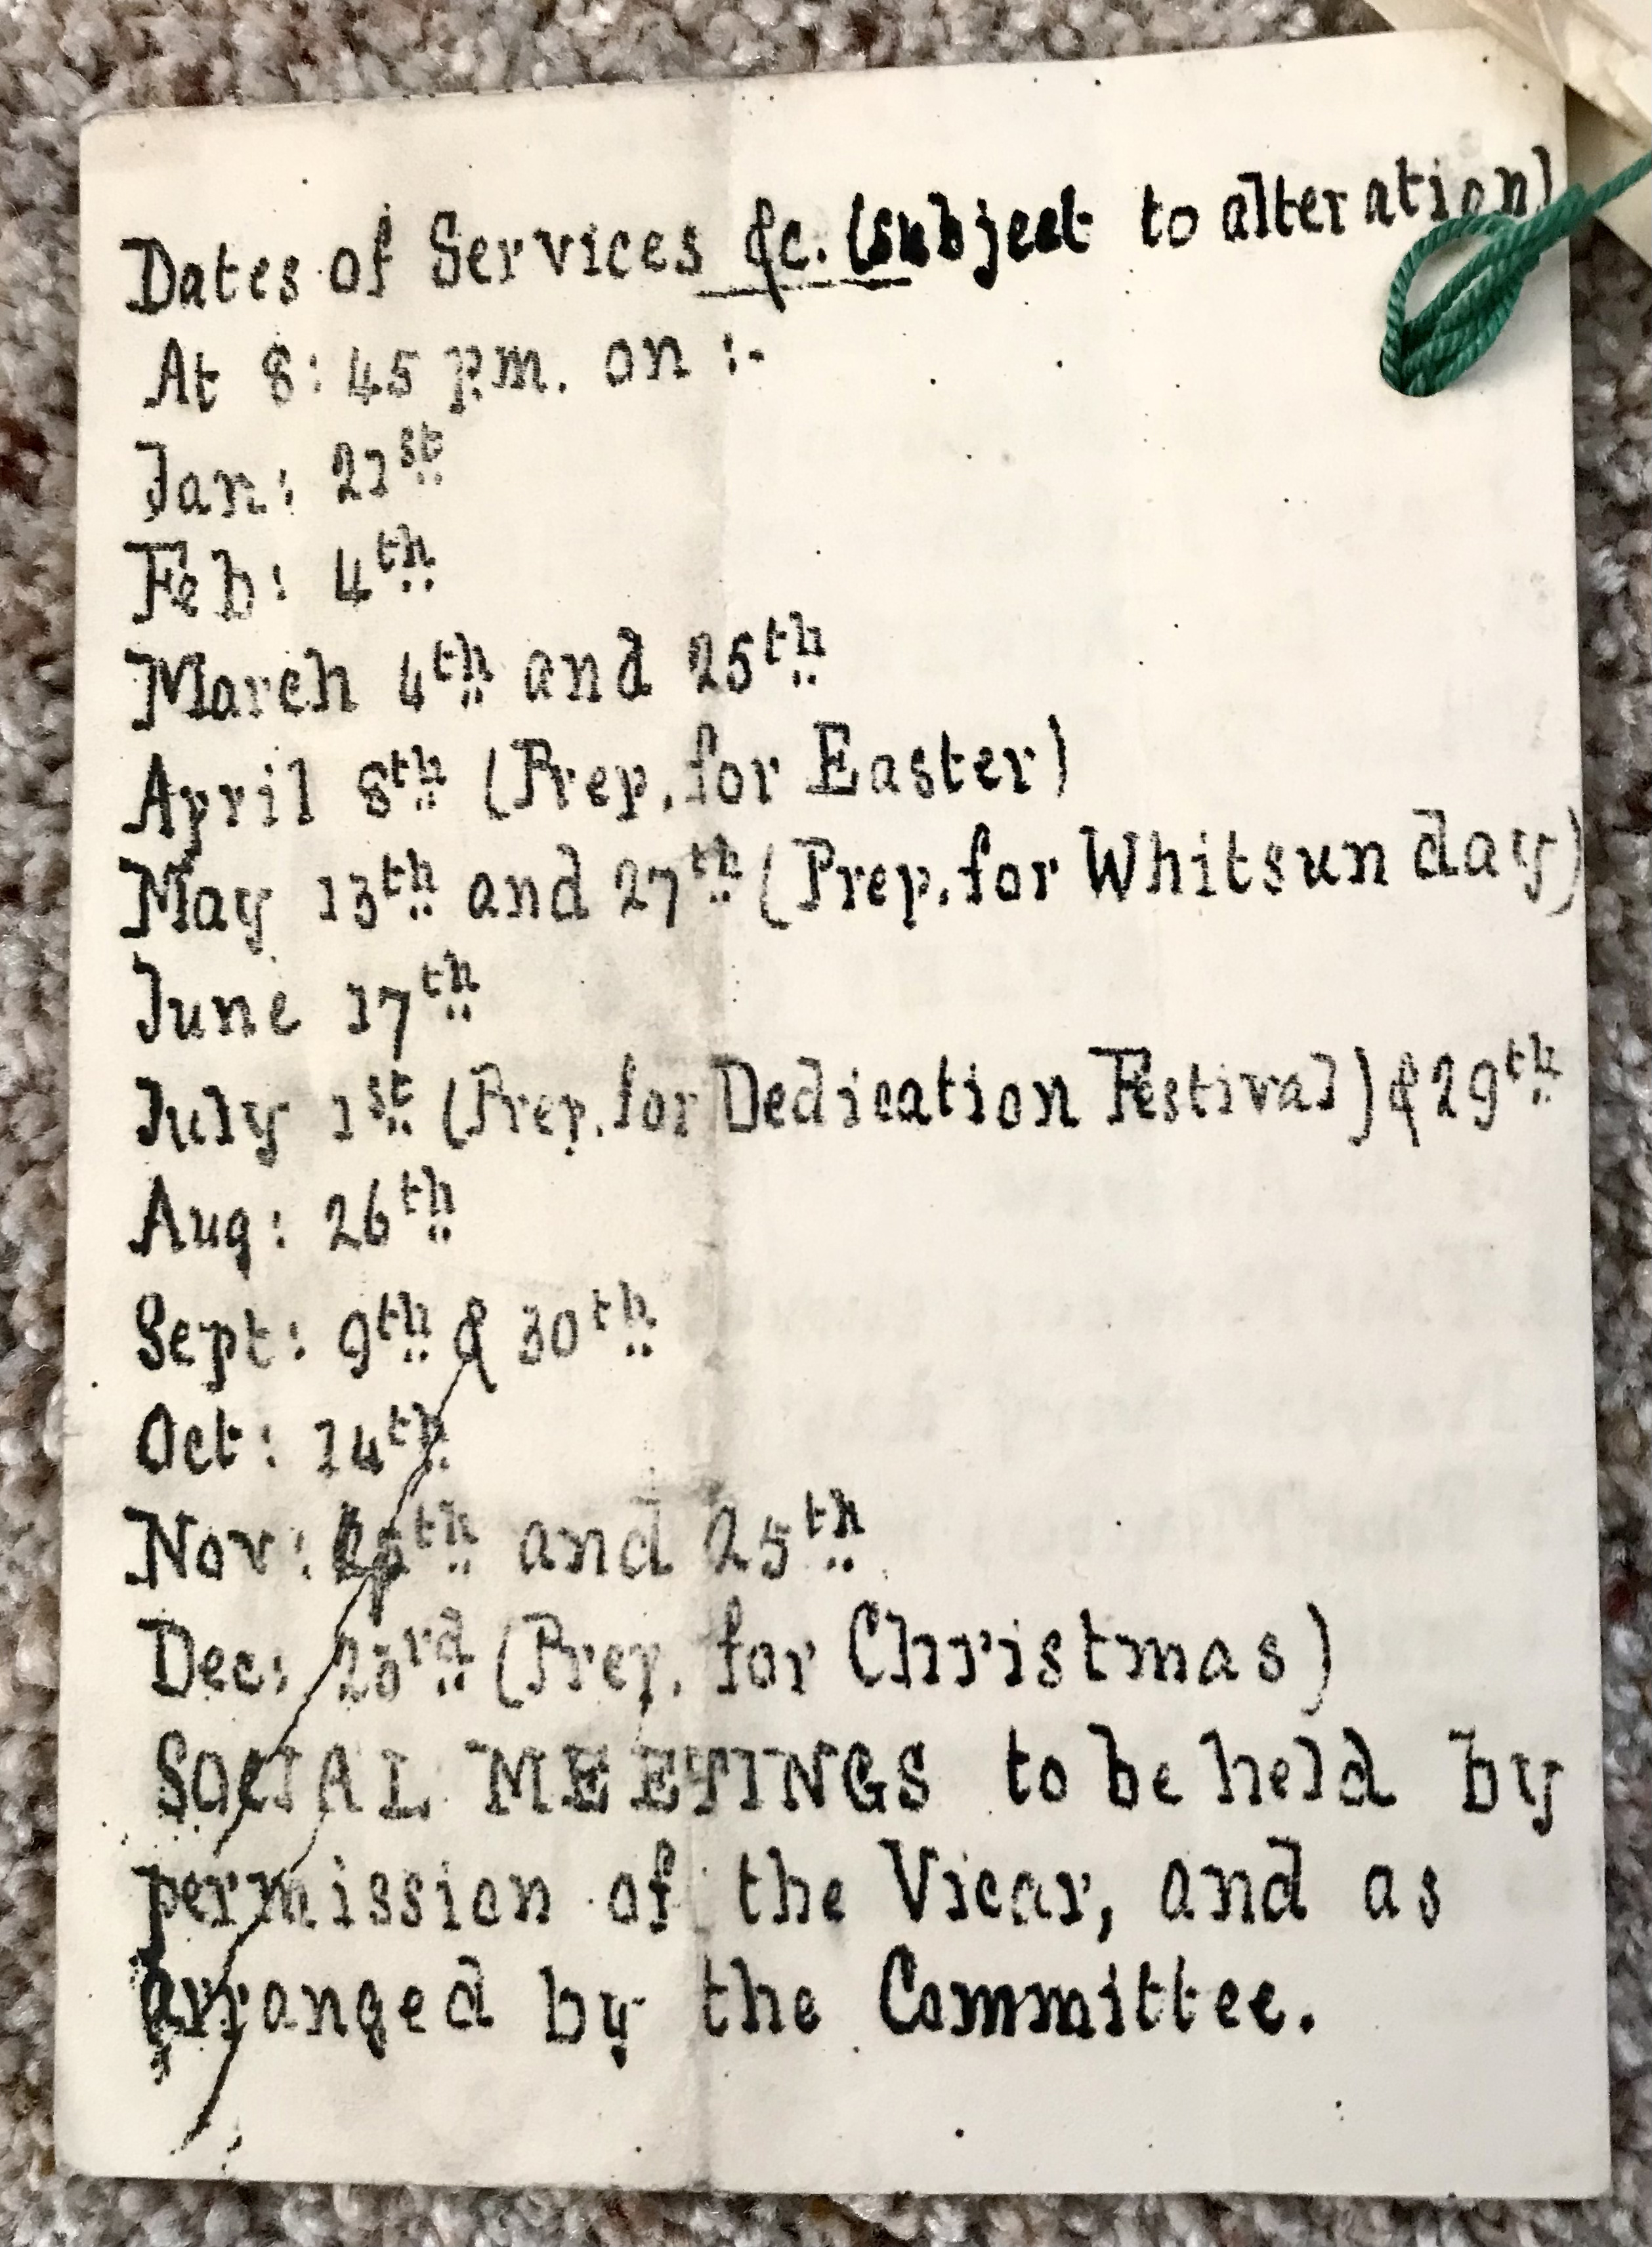 Dates of Services &c. (subject to alteration)
At 8:45 p.m. on :-
Jan: 21st
Feb: 4th
March 4th and 25th
April 8th (Prep. for Easter)
May 13th and 27th (Prep. for Whitsunday)
June 17th
July 1st (Prep. for Dedication Festival) & 29th
Aug: 26th
Sept: 9th & 30th
Oct: 14th
Nov: and 25th
Dec: 23rd (Prep. for Christmas)
SOCIAL MEETINGS to be held by
permission of the Vicar, and as
arranged by the Committee.